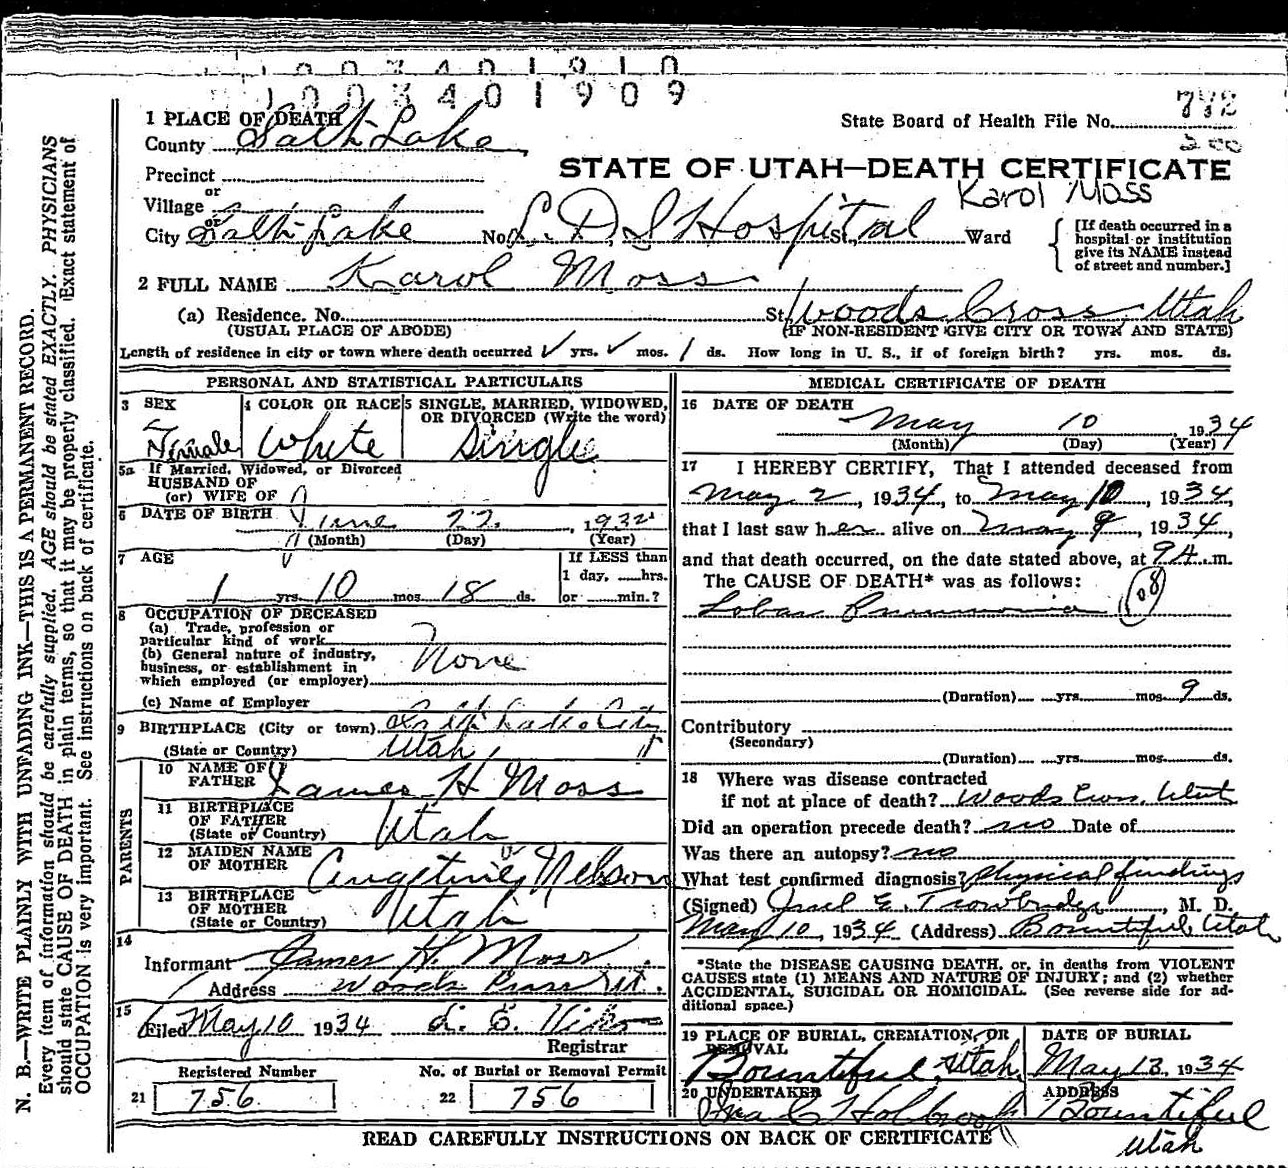 1003401910
1003401909
772
State Board of Health File No.
200
1 PLACE OF DEATH
County Salt Lake
STATE OF UTAH—DEATH CERTIFICATE
Karol Moss
Precinct
or
Village
or
City Salt Lake No. L.D.S Hospital St. Ward
[If death occurred in a hospital or institution give its NAME instead of street and number.]
2 FULL NAME Karol Moss
(a) Residence. No. St. Woods Cross Utah
(USUAL PLACE OF ABODE) (IF NON-RESIDENT GIVE CITY OR TOWN AND STATE)
Length of residence in city or town where death occurred yrs. mos. 1 ds. How long in U. S., if of foreign birth? yrs. mos. ds.
PERSONAL AND STATISTICAL PARTICULARS
3 SEX
Female
4 COLOR OR RACE
White
5 SINGLE, MARRIED, WIDOWED,
OR DIVORCED (Write the word)
Single
5a If Married, Widowed, or Divorced
HUSBAND OF
(or) WIFE OF
6 DATE OF BIRTH June 22, 1932
(Month) (Day) (Year)
7 AGE
1 yrs. 10 mos. 18 ds.
If LESS than
1 day, hrs.
or min.?
8 OCCUPATION OF DECEASED
(a) Trade, profession or
particular kind of work
(b) General nature of industry,
business, or establishment in
which employed (or employer)
None
(c) Name of Employer
9 BIRTHPLACE (City or town) Salt Lake City
(State or Country) Utah
PARENTS
10 NAME OF
FATHER James H Moss
11 BIRTHPLACE
OF FATHER
(State or Country) Utah
12 MAIDEN NAME
OF MOTHER Angeline Nelson
13 BIRTHPLACE
OF MOTHER
(State or Country) Utah
14
Informant James H. Moss
Address Woods Cross Ut.
15
Filed May 10 1934
Registrar
Registered Number
21 756
No. of Burial or Removal Permit
22 756
MEDICAL CERTIFICATE OF DEATH
16 DATE OF DEATH
May 10, 1934
(Month) (Day) (Year)
17 I HEREBY CERTIFY, That I attended deceased from
May 2, 1934, to May 10, 1934,
that I last saw her alive on May 9, 1934,
and that death occurred, on the date stated above, at 9 A. m.
The CAUSE OF DEATH* was as follows:
Lobar Pneumonia 108
(Duration) yrs. mos. 9 ds.
Contributory
(Secondary)
(Duration) yrs. mos. ds.
18 Where was disease contracted
if not at place of death? Woods Cross, Utah
Did an operation precede death? no Date of
Was there an autopsy? no
What test confirmed diagnosis? Physical findings
(Signed) E. Trowbridge, M. D.
May 10, 1934 (Address) Bountiful, Utah
*State the DISEASE CAUSING DEATH, or, in deaths from VIOLENT
CAUSES state (1) MEANS AND NATURE OF INJURY; and (2) whether
ACCIDENTAL, SUICIDAL OR HOMICIDAL. (See reverse side for ad-
ditional space.)
19 PLACE OF BURIAL, CREMATION, OR
REMOVAL
Bountiful, Utah
DATE OF BURIAL
May 13, 1934
20 UNDERTAKER
Holbrook
ADDRESS
Bountiful
Utah
READ CAREFULLY INSTRUCTIONS ON BACK OF CERTIFICATE
N. B.—WRITE PLAINLY WITH UNFADING INK—THIS IS A PERMANENT RECORD.
Every item of information should be carefully supplied. AGE should be stated EXACTLY. PHYSICIANS
should state CAUSE OF DEATH in plain terms, so that it may be properly classified. Exact statement of
OCCUPATION is very important. See instructions on back of certificate.